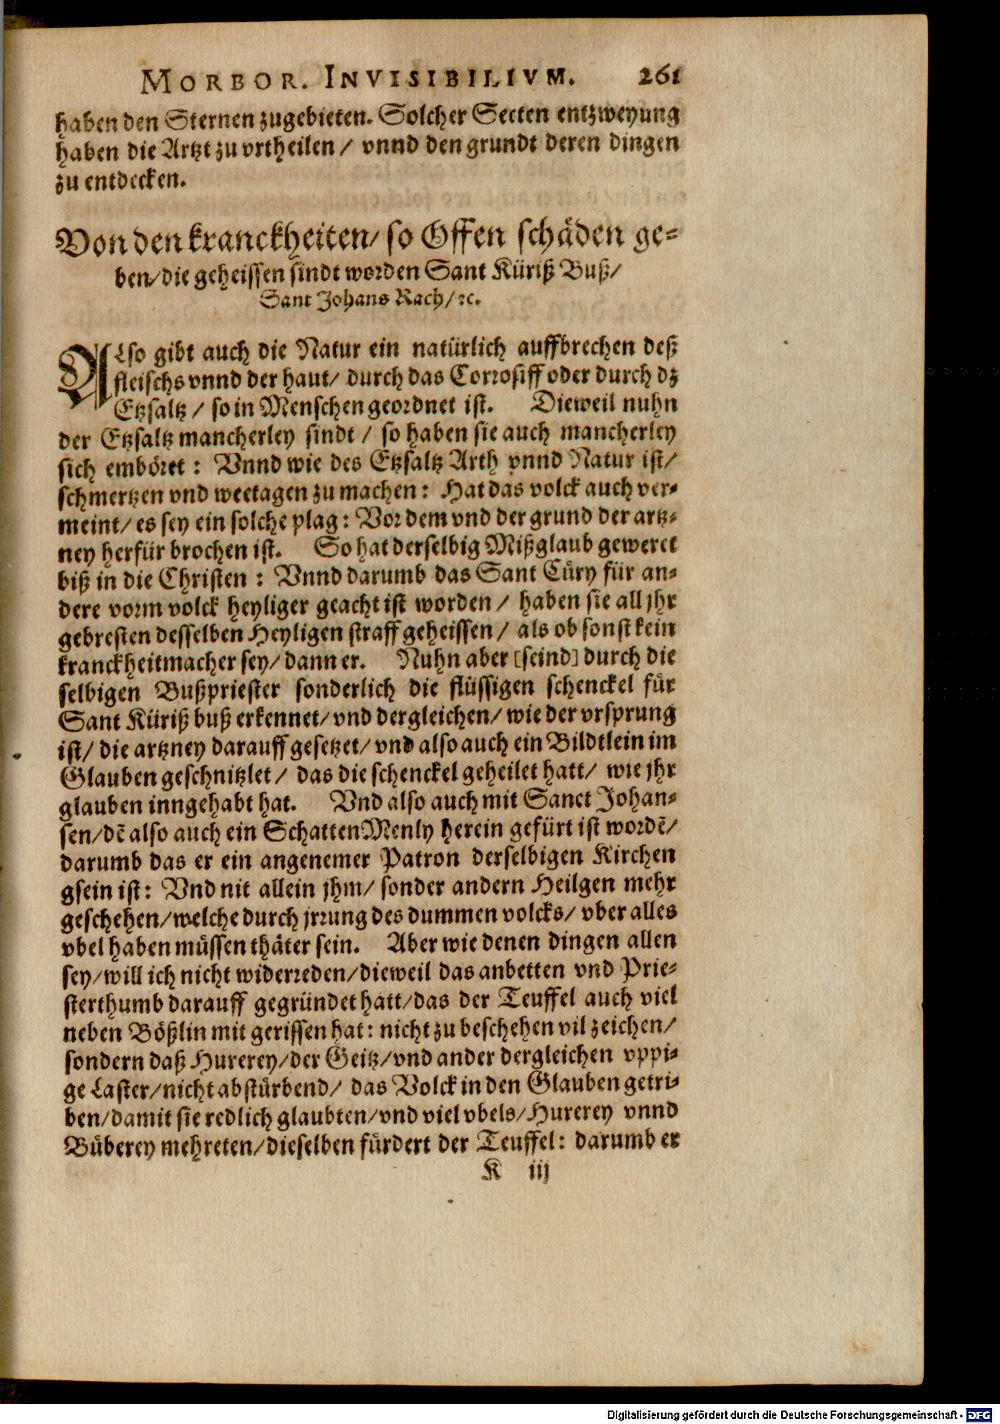 MORBOR. INVISIBILIVM. 261
haben den Sternen zugebieten. Solcher Secten entzweyung
haben die Artzt zu vrtheilen / vnnd den grundt deren dingen
zu entdecken.
Von den kranckheiten / so Offen schäden ge-
ben / die geheissen sindt worden Sant Küriß Buß /
Sant Johans Rach / ꝛc.
Also gibt auch die Natur ein natürlich auffbrechen deß
fleischs vnnd der haut / durch das Corrosiff oder durch dz
Etzsaltz / so in Menschen geordnet ist. Dieweil nuhn
der Etzsaltz mancherley sindt / so haben sie auch mancherley
sich emböret : Vnnd wie des Etzsaltz Arth vnnd Natur ist /
schmertzen vnd weetagen zu machen : Hat das volck auch ver-
meint / es sey ein solche plag : Vor dem vnd der grund der artz-
ney herfür brochen ist. So hat derselbig Mißglaub geweret
biß in die Christen : Vnnd darumb das Sant Cüry für an-
dere vorm volck heyliger geacht ist worden / haben sie all jhr
gebresten desselben Heyligen straff geheissen / als ob sonst kein
kranckheitmacher sey / dann er. Nuhn aber [seind] durch die
selbigen Bußpriester sonderlich die flüssigen schenckel für
Sant Küriß buß erkennet / vnd dergleichen / wie der vrsprung
ist / die artzney darauff gesetzet / vnd also auch ein Bildtlein im
Glauben geschnitzlet / das die schenckel geheilet hatt / wie jhr
glauben inngehabt hat. Vnd also auch mit Sanct Johan-
sen / dē also auch ein Schatten Menly herein gefürt ist wordē /
darumb das er ein angenemer Patron derselbigen Kirchen
gsein ist : Vnd nit allein jhm / sonder andern Heilgen mehr
geschehen / welche durch jrrung des dummen volcks / vber alles
vbel haben müssen thäter sein. Aber wie denen dingen allen
sey / will ich nicht widerreden / dieweil das anbetten vnd Prie-
sterthumb darauff gegründet hatt / das der Teuffel auch viel
neben Bößlin mit gerissen hat : nicht zu beschehen vil zeichen /
sondern daß Hurerey / der Geitz / vnd ander dergleichen vppi-
ge Laster / nicht abstürbend / das Volck in den Glauben getri-
ben / damit sie redlich glaubten / vnd viel vbels / Hurerey vnnd
Büberey mehreten / dieselben fürdert der Teuffel : darumb er
K iij
Digitalisierung gefördert durch die Deutsche Forschungsgemeinschaft - DFG